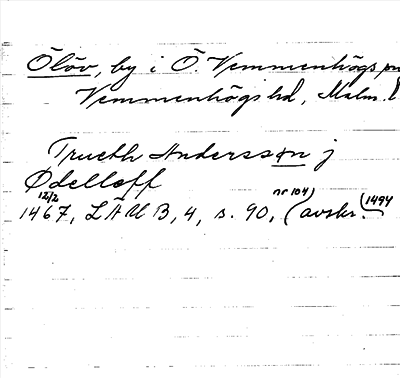 Ölöv, by i Ö. Vemmenhögs
Vemmenhögs hd, Malm. l
Trueth Andersson j
Ødelleff
12/2 nr 104
1467, LÄUB, 4, s. 90, (avskr. (1494